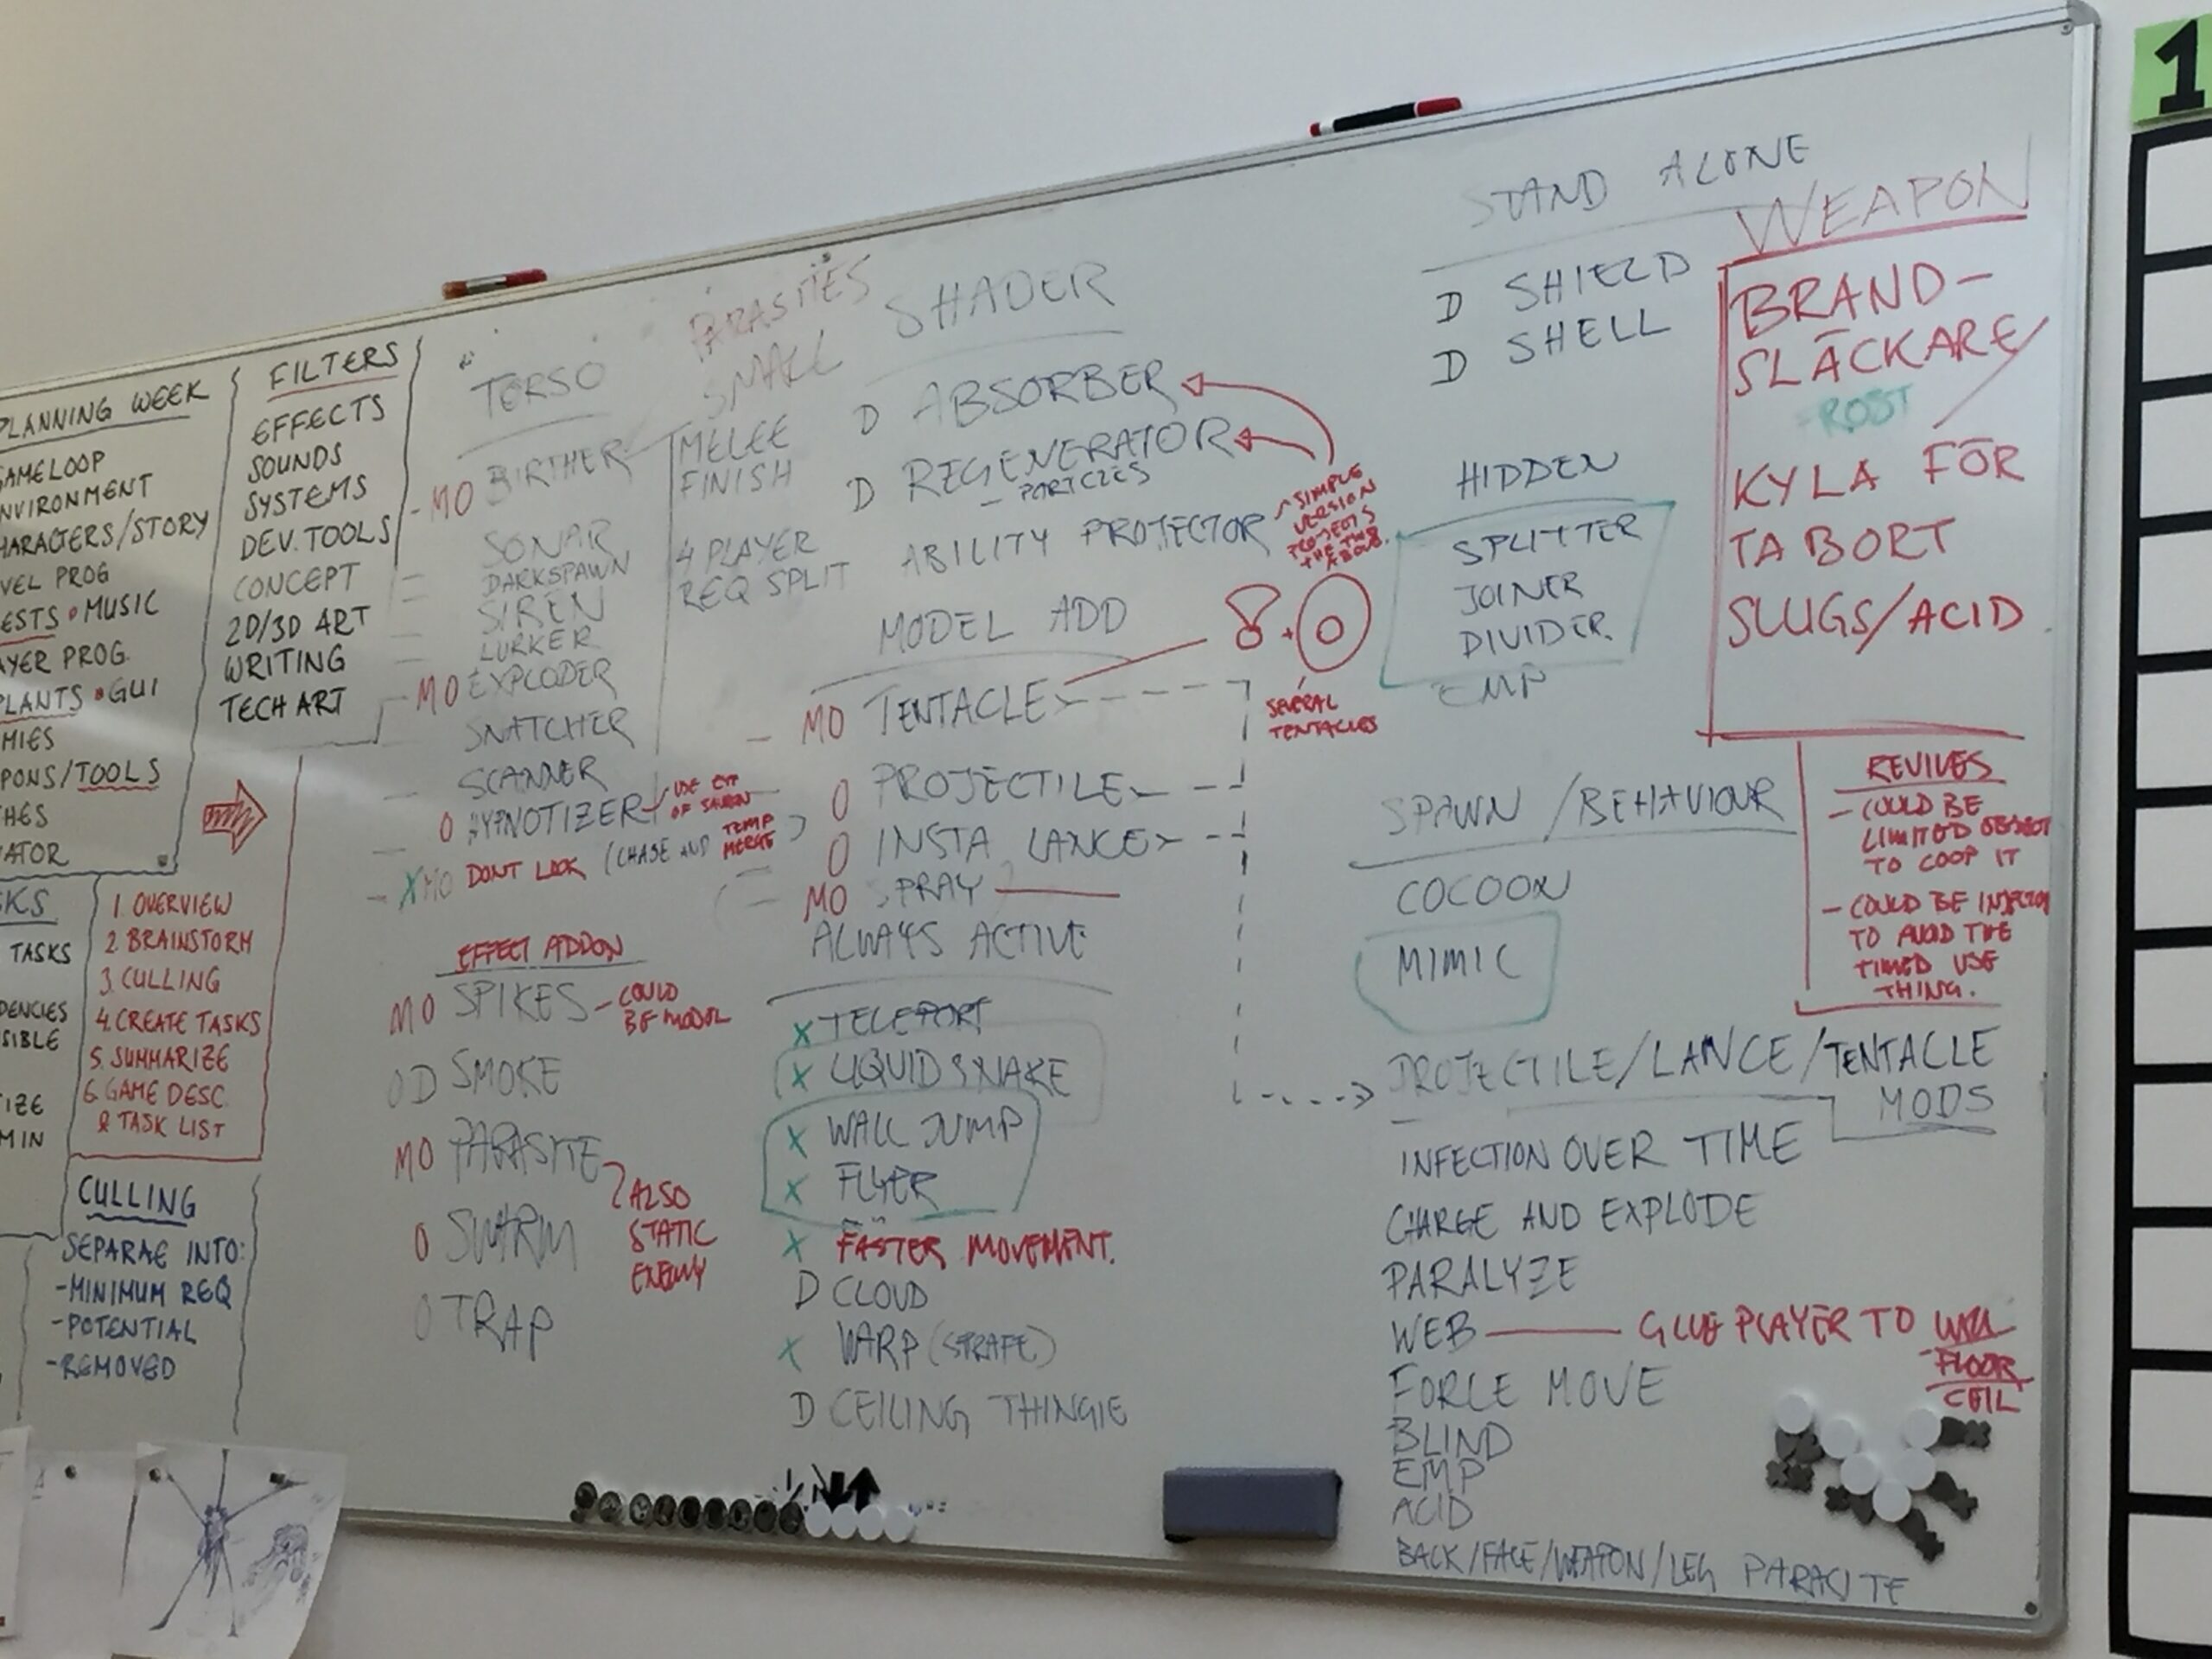 PLANNING WEEK
GAMELOOP
ENVIRONMENT
CHARACTERS/STORY
VEL PROG
ESTS • MUSIC
AYER PROG.
PLANTS • GUI
MIES
PONS/TOOLS
HES
ATOR
KS
TASKS
DENCIES
SIBLE
IZE
MIN
FILTERS
EFFECTS
SOUNDS
SYSTEMS
DEV. TOOLS
CONCEPT
2D/3D ART
WRITING
TECH ART
1. OVERVIEW
2 BRAINSTORM
3. CULLING
4. CREATE TASKS
5. SUMMARIZE
6. GAME DESC.
& TASK LIST
CULLING
SEPARAE INTO:
-MINIMUM REQ
-POTENTIAL
-REMOVED
TORSO
MO BIRTHER
SONAR
DARKSPAWN
SIREN
LURKER
MO EXPLODER
SNATCHER
SCANNER
O HYPNOTIZER
USE
OF
X MO DONT LOOK (CHASE AND TEMP
MERGE)
EFFECT ADDON
MO SPIKES - COULD
BE MODEL
OD SMOKE
MO PARASITE
ALSO
STATIC
ENEMY
O SWARM
O TRAP
PARASTIES
SMALL
MELEE
FINISH
4 PLAYER
REQ SPLIT
SHADER
D ABSORBER
D REGENERATOR
- PARTICLES
ABILITY PROJECTOR
- SIMPLE
VERSION
PROJECTS
THE TWO
ABOVE.
MODEL ADD
MO TENTACLE
SEVERAL
TENTACLES
O PROJECTILE
O INSTA LANCE
MO SPRAY
ALWAYS ACTIVE
X TELEPORT
X LIQUID SNAKE
X WALL JUMP
X FLYER
X FASTER MOVEMENT.
D CLOUD
X WARP (STRAFE)
D CEILING THINGIE
STAND ALONE
D SHIELD
D SHELL
HIDDEN
SPLITTER
JOINER
DIVIDER.
EMP
SPAWN / BEHAVIOUR
COCOON
MIMIC
PROJECTILE/LANCE/TENTACLE
MODS
INFECTION OVER TIME
CHARGE AND EXPLODE
PARALYZE
WEB — GLUE PLAYER TO WALL
FLOOR
CEIL
FORCE MOVE
BLIND
EMP
ACID
BACK/FACE/WEAPON/LEG PARACITE
WEAPON
BRAND-
SLÄCKARE
KYLA FÖR
TA BORT
SLUGS/ACID
REVIVES
- COULD BE
LIMITED OBJECT
TO COOP IT
- COULD BE INJECTOR
TO AVOID THE
TIMED USE
THING.
1